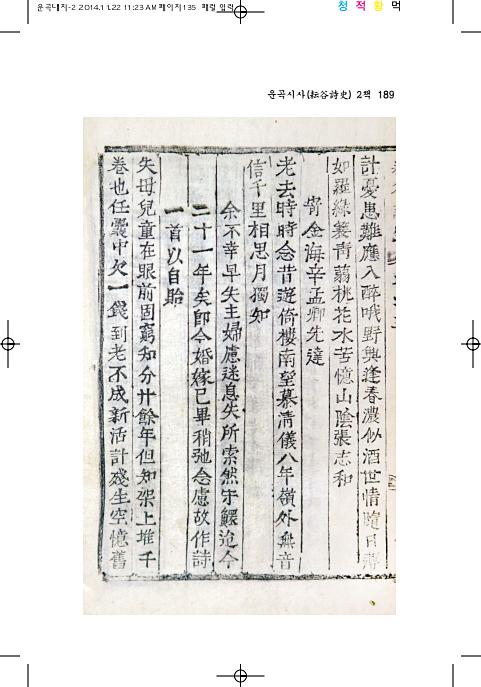 운곡대지-2 2014.11.22 11:23 AM 페이지135
청 적 황 먹
운곡시사(耘谷詩史) 2책 189
計憂患難應入醉哦野興逢春濃似酒世情隨日薄
如羅絲蓑靑蒻桃花水苦憶山陰張志和
寄金海辛孟卿先達
老去時時念昔遊倚樓南望慕淸儀八年嶺外無音
信千里相思月獨知
余不幸早失主婦慮迷息失所索然守鰥迨今
二十一年矣卽今婚嫁已畢稍弛念慮故作詩
一首以自貽
失母兒童在眼前固窮知分廿餘年但知架上堆千
卷也任囊中欠一錢到老不成新活計殘生空憶舊